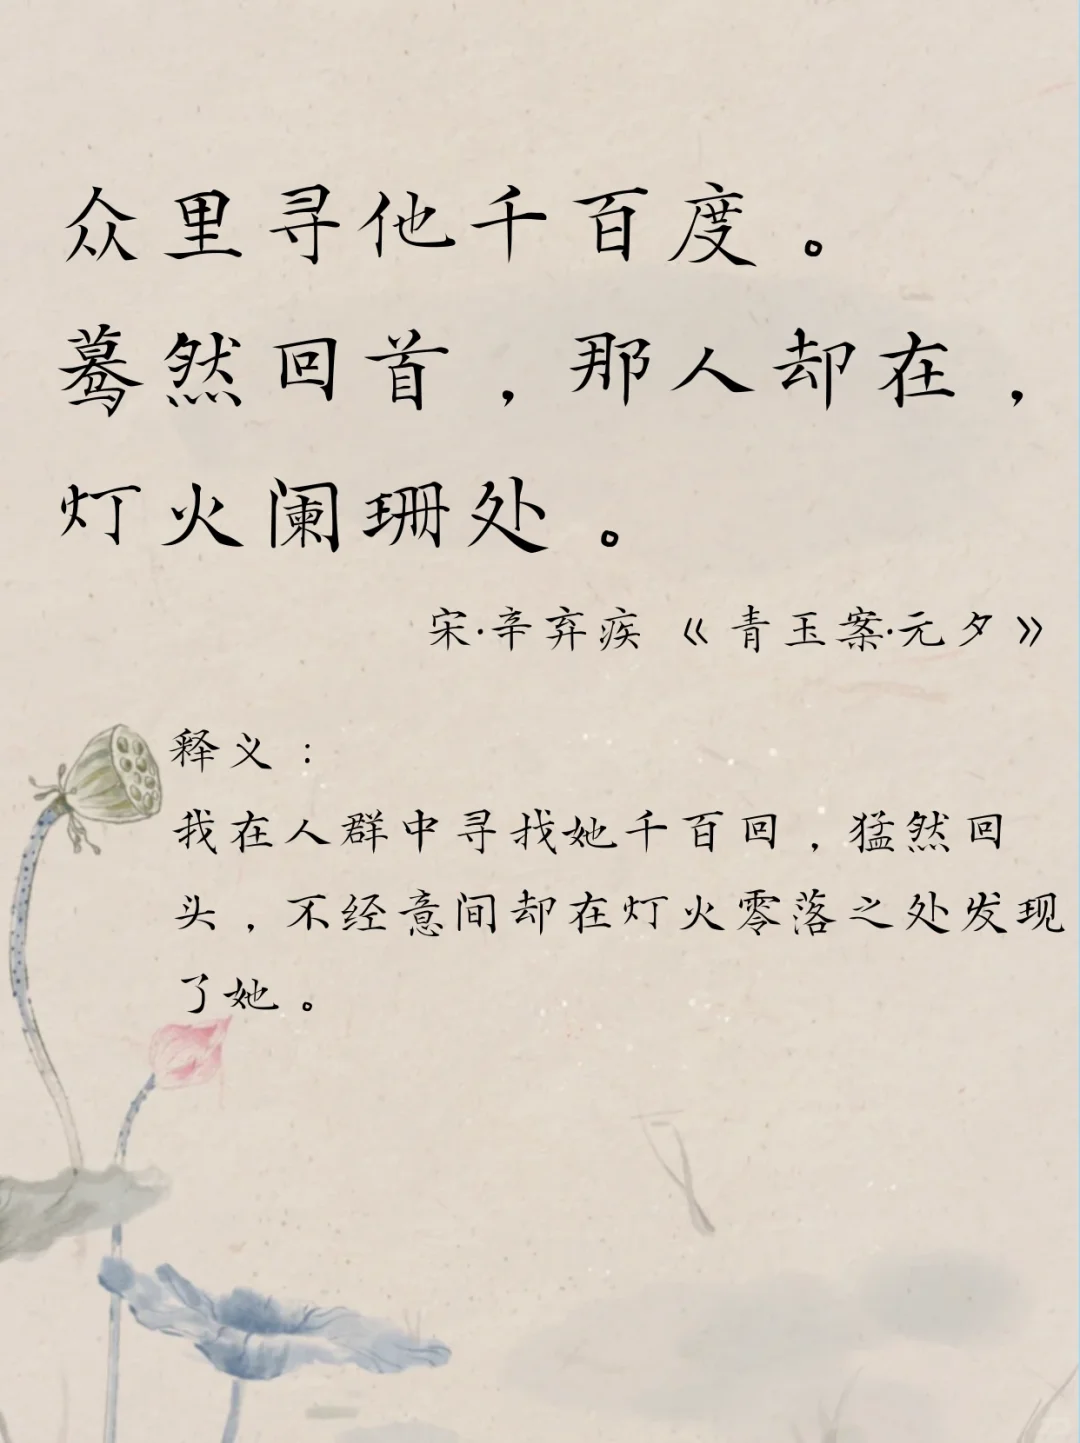 众里寻他千百度。
蓦然回首，那人却在，
灯火阑珊处。
宋·辛弃疾《青玉案·元夕》
释义：
我在人群中寻找她千百回，猛然回
头，不经意间却在灯火零落之处发现
了她。